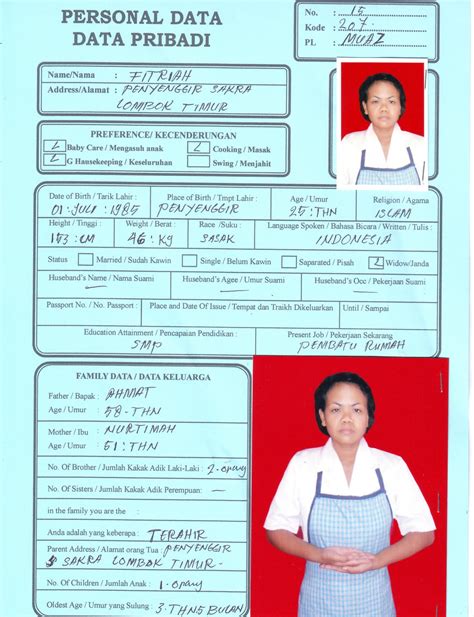 PERSONAL DATA
DATA PRIBADI
No. : 15
Kode : 207
PL : MUAZ
Name/Nama : FITRIAH
Address/Alamat : PENYENGGIR SAKRA
LOMBOK TIMUR
PREFERENCE/ KECENDERUNGAN
Baby Care / Mengasuh anak
Cooking / Masak
G Housekeeping / Keseluruhen
Swing / Menjahit
Date of Birth / Tarik Lahir :
01 JULI 1985
Place of Birth / Tmpt Lahir :
PENYENGGIR
Age / Umur
25 THN
Religion / Agama
ISLAM
Height / Tinggi :
153 CM
Weight / Berat :
46 Kg
Race /Suku :
SASAK
Language Spoken / Bahasa Bicara / Written / Tulis :
INDONESIA
Status
Married / Sudah Kawin
Single / Belum Kawin
Saparated / Pisah
Widow/Janda
Huseband's Name / Nama Suami
Huseband's Agee / Umur Suami
Huseband's Occ / Pekerjaan Suami
Passport No. / No. Passport :
Place and Date Of Issue / Tempat dan Traikh Dikeluarkan
Until / Sampai
Education Attainment / Pencapaian Pendidikan :
SMP
Present Job / Pekerjaan Sekarang
PEMBATU RUMAH
FAMILY DATA / DATA KELUARGA
Father / Bapak : AHMAT
Age / Umur : 58 THN
Mother / Ibu : NURTIMAH
Age / Umur : 51 THN
No. Of Brother / Jumlah Kakak Adik Laki-Laki : 2 orang
No. Of Sisters / Jumlah Kakak Adik Perempuan
in the family you are the :
Anda adalah yang keberapa : TERAHIR
Parent Address / Alamat orang Tua : PENYENGGIR
SAKRA LOMBOK TIMUR
No. Of Children / Jumlah Anak : 1 orang
Oldest Age / Umur yang Sulung : 3 THN 5 BULAN